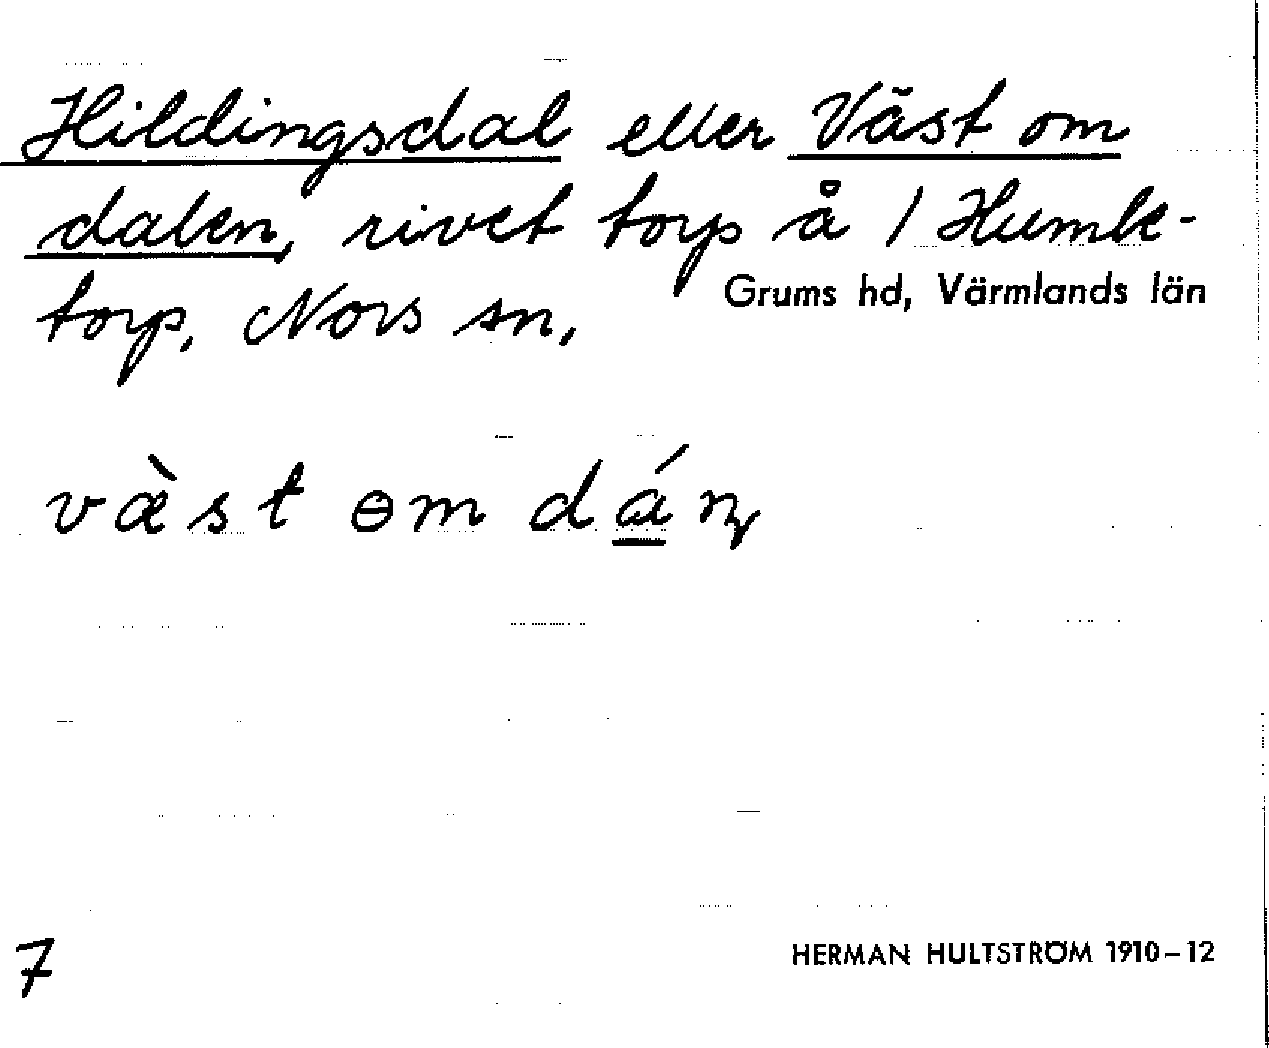 Hildingsdal eller Väst om
dalen, rivet torp å 1 Humle-
torp, Nors sn,
Grums hd, Värmlands län
væ̀st ɵm dɑ́n
7
HERMAN HULTSTRÖM 1910–12